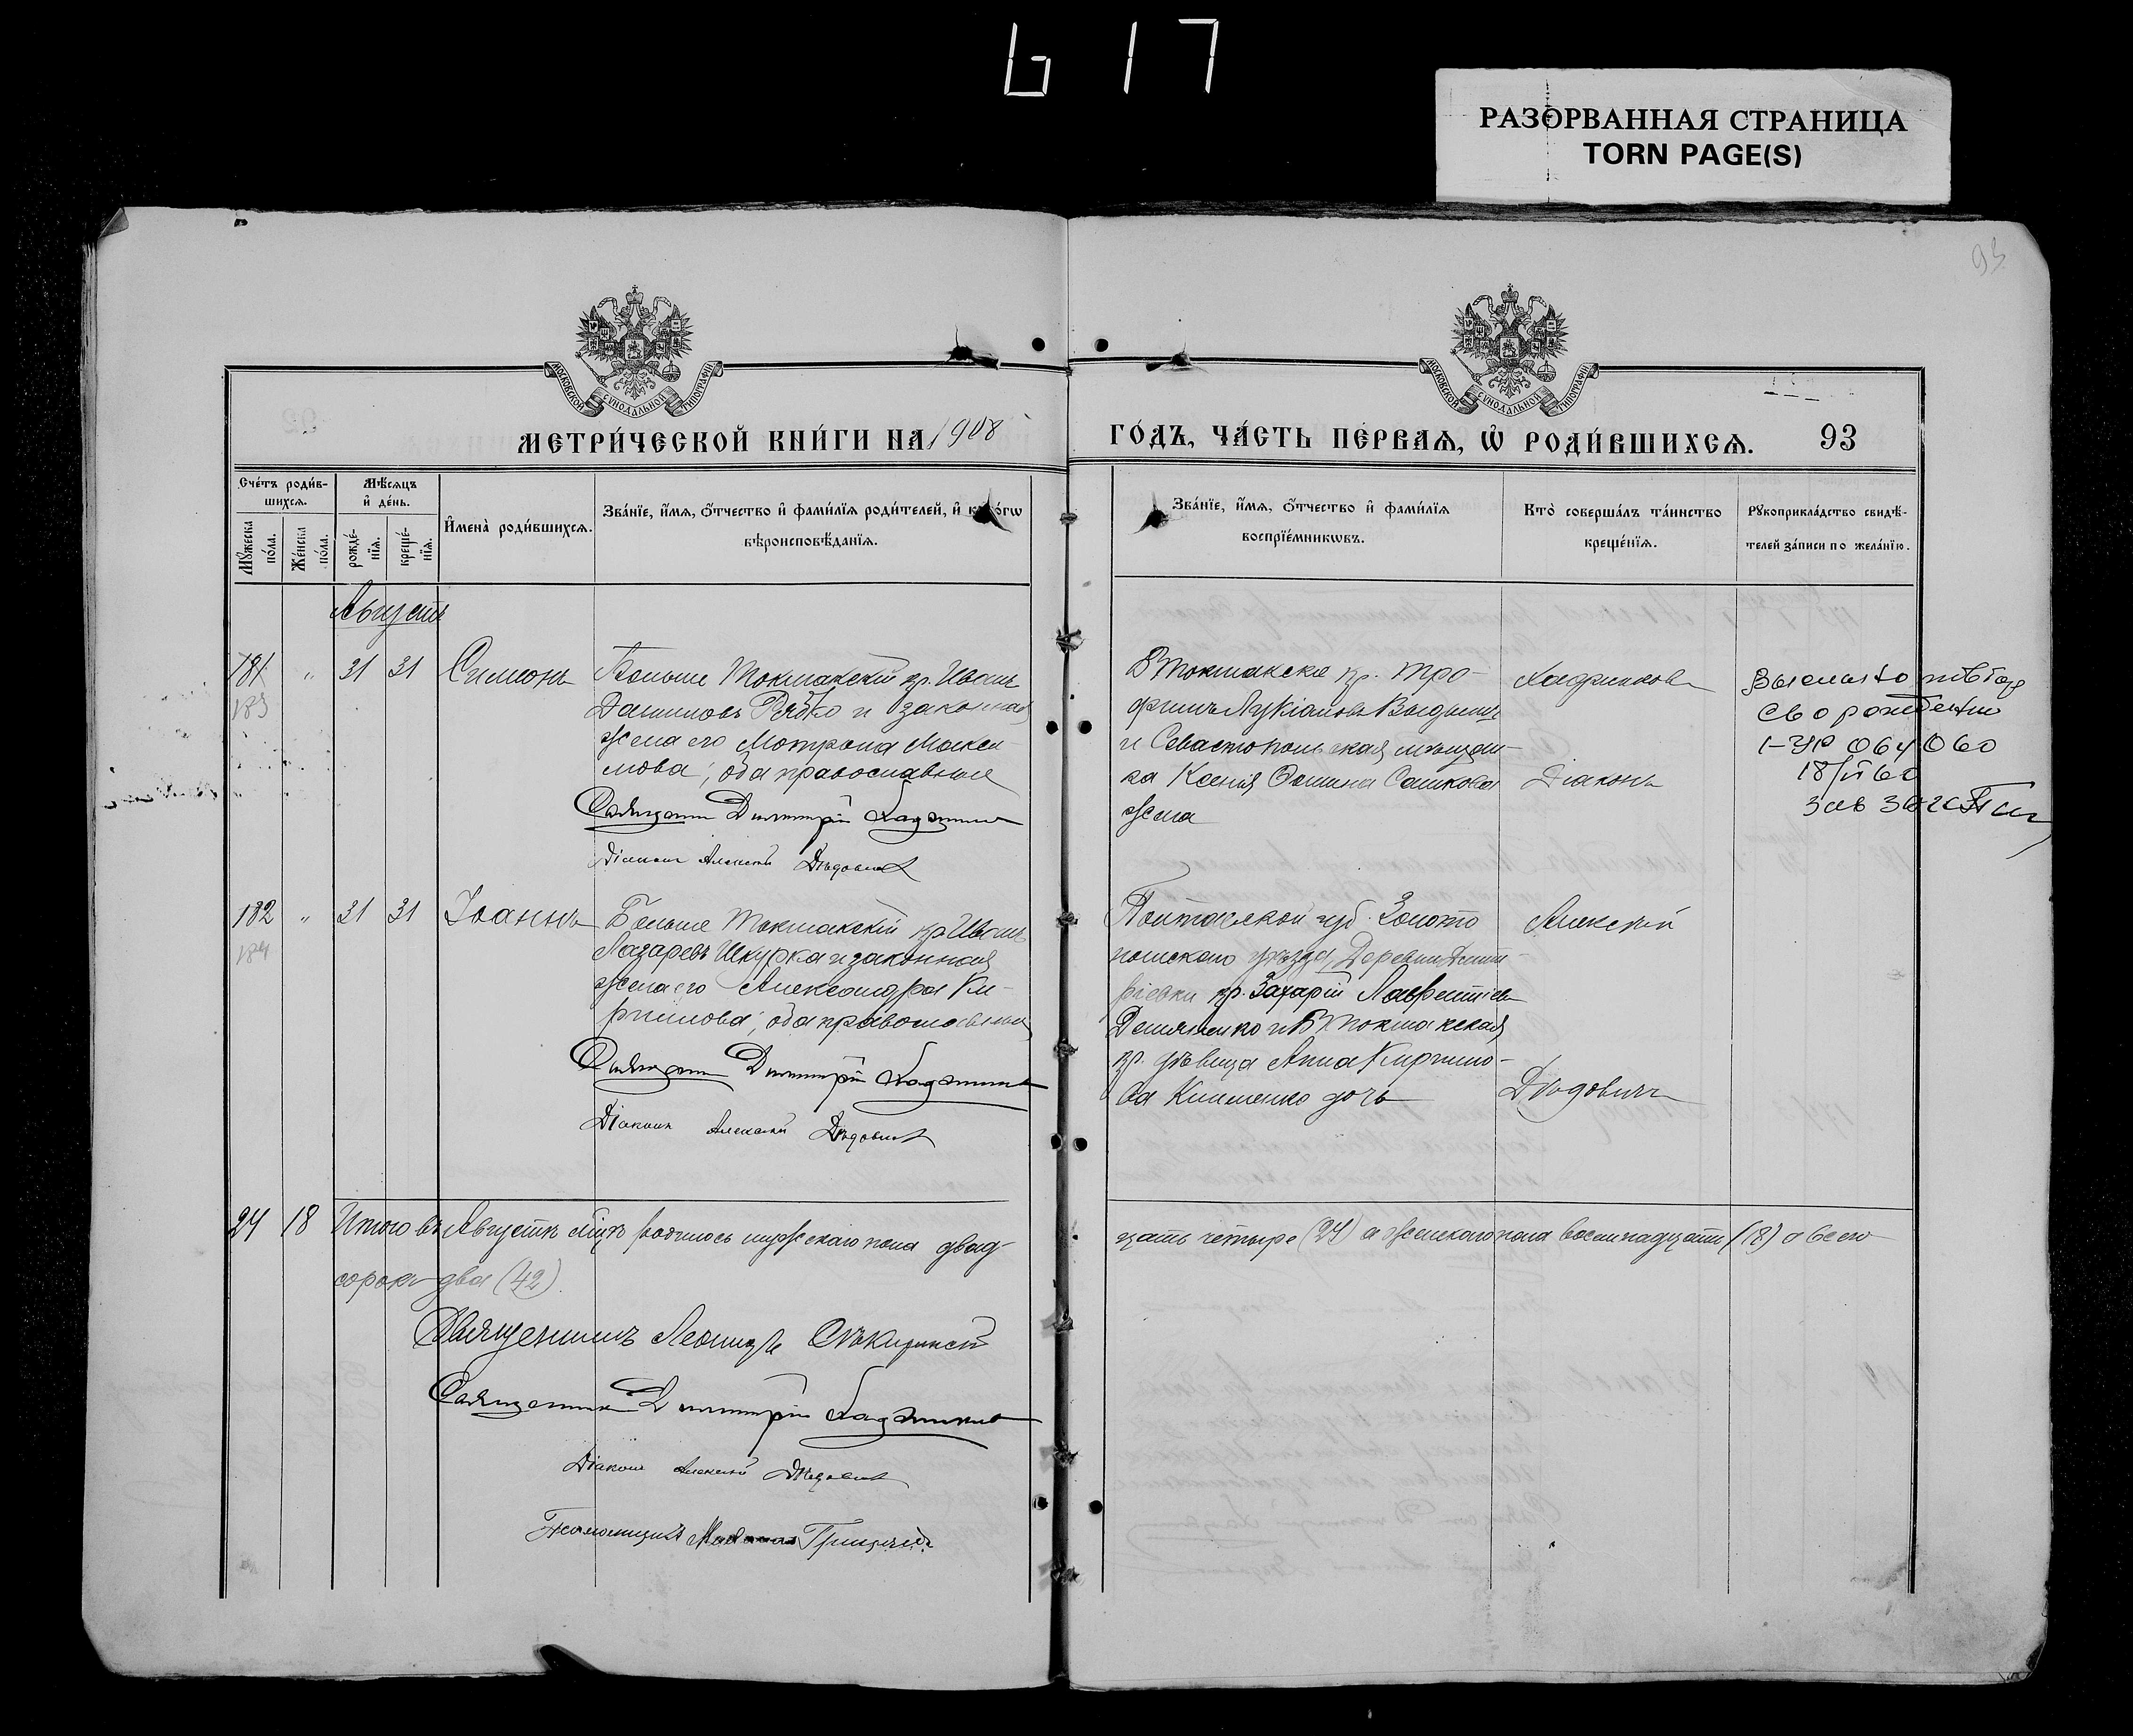 617
РАЗОРВАННАЯ СТРАНИЦА
TORN PAGE(S)
93
МОСКОВСКОЙ СѴНОДАЛЬНОЙ ТИПОГРАФІИ
МОСКОВСКОЙ СѴНОДАЛЬНОЙ ТИПОГРАФІИ
МЕТРИ́ЧЕСКОЙ КНИ́ГИ НА 1908
ГО́ДЪ, ЧА́СТЬ ПЕ́РВАѦ, Ѡ҆ РОДИ́ВШИХСѦ. 93
Сче́тъ роди́в-
шихсѧ.
Мꙋ́жеска по́ла.
Же́нска по́ла.
Мѣ́сѧцъ
и҆ де́нь.
рожде́-
нїѧ.
креще́-
нїѧ.
И҆мена̀ роди́вшихсѧ.
Зва́нїе, и҆́мѧ, ѻ҆́тчество и҆ фами́лїѧ роди́телей, и҆ како́гѡ
вѣроисповѣ́данїѧ.
Зва́нїе, и҆́мѧ, ѻ҆́тчество и҆ фами́лїѧ
воспрїе́мникѡвъ.
Кто̀ соверша́лъ та́инство
креще́нїѧ.
Рꙋкоприкла́дство свидѣ́-
телей за́писи по жела́нїю.
Августъ
181 " 31 31 Симеонъ
183
Больше Токмакскій кр. Иванъ
Даниловъ Рябко и законная
жена его Мотрона Макси-
мова, оба православные
Священникъ Димитрій
Діаконъ Алексѣй Дѣдовичъ
Б Токмакскіе кр. Тро-
фимъ Лукіановъ
и Севастопольская мѣщан-
ка Ксенія Сашкова
жена
Діаконъ
св о рождении
1-УР 064060
18/II 60
Зав загс
182 " 31 31 Іоаннъ
184
Больше Токмакскій кр. Иванъ
Лазаревъ Шкурка и законная
жена его Александра Ки-
риллова, оба православные
Священникъ Димитрій
Діаконъ Алексѣй Дѣдовичъ
Полтавской губ. Золото-
ношскаго уѣзда, Деревни Дмит-
ріевки кр. Захарій Лаврентіевъ
Демяненко и Б Токмакская
кр. дѣвица Анна Кирилло-
ва Клименко дочь
Алексѣй
Дѣдовичъ
24 18 Итого въ Августѣ мцѣ родилось мужескаго пола двад-
цать четыре (24) а женскаго пола восемнадцать (18) а всего
сорокъ два (42).
Священникъ Леонидъ
Священникъ Димитрій
Діаконъ Алексѣй Дѣдовичъ
Псаломщикъ